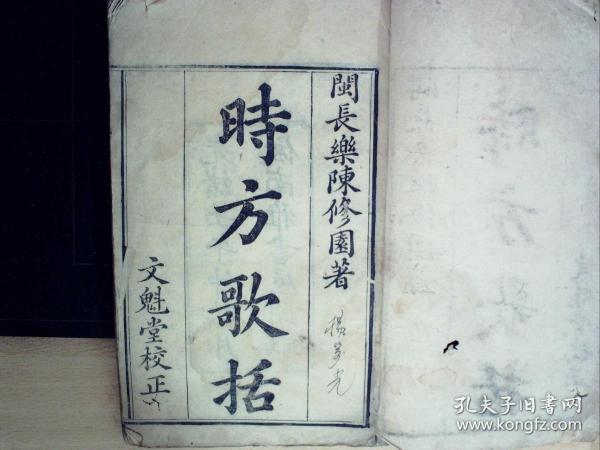 閩長樂陳修園著
時方歌括
文魁堂校正
孔夫子旧书网
www.kongfz.com